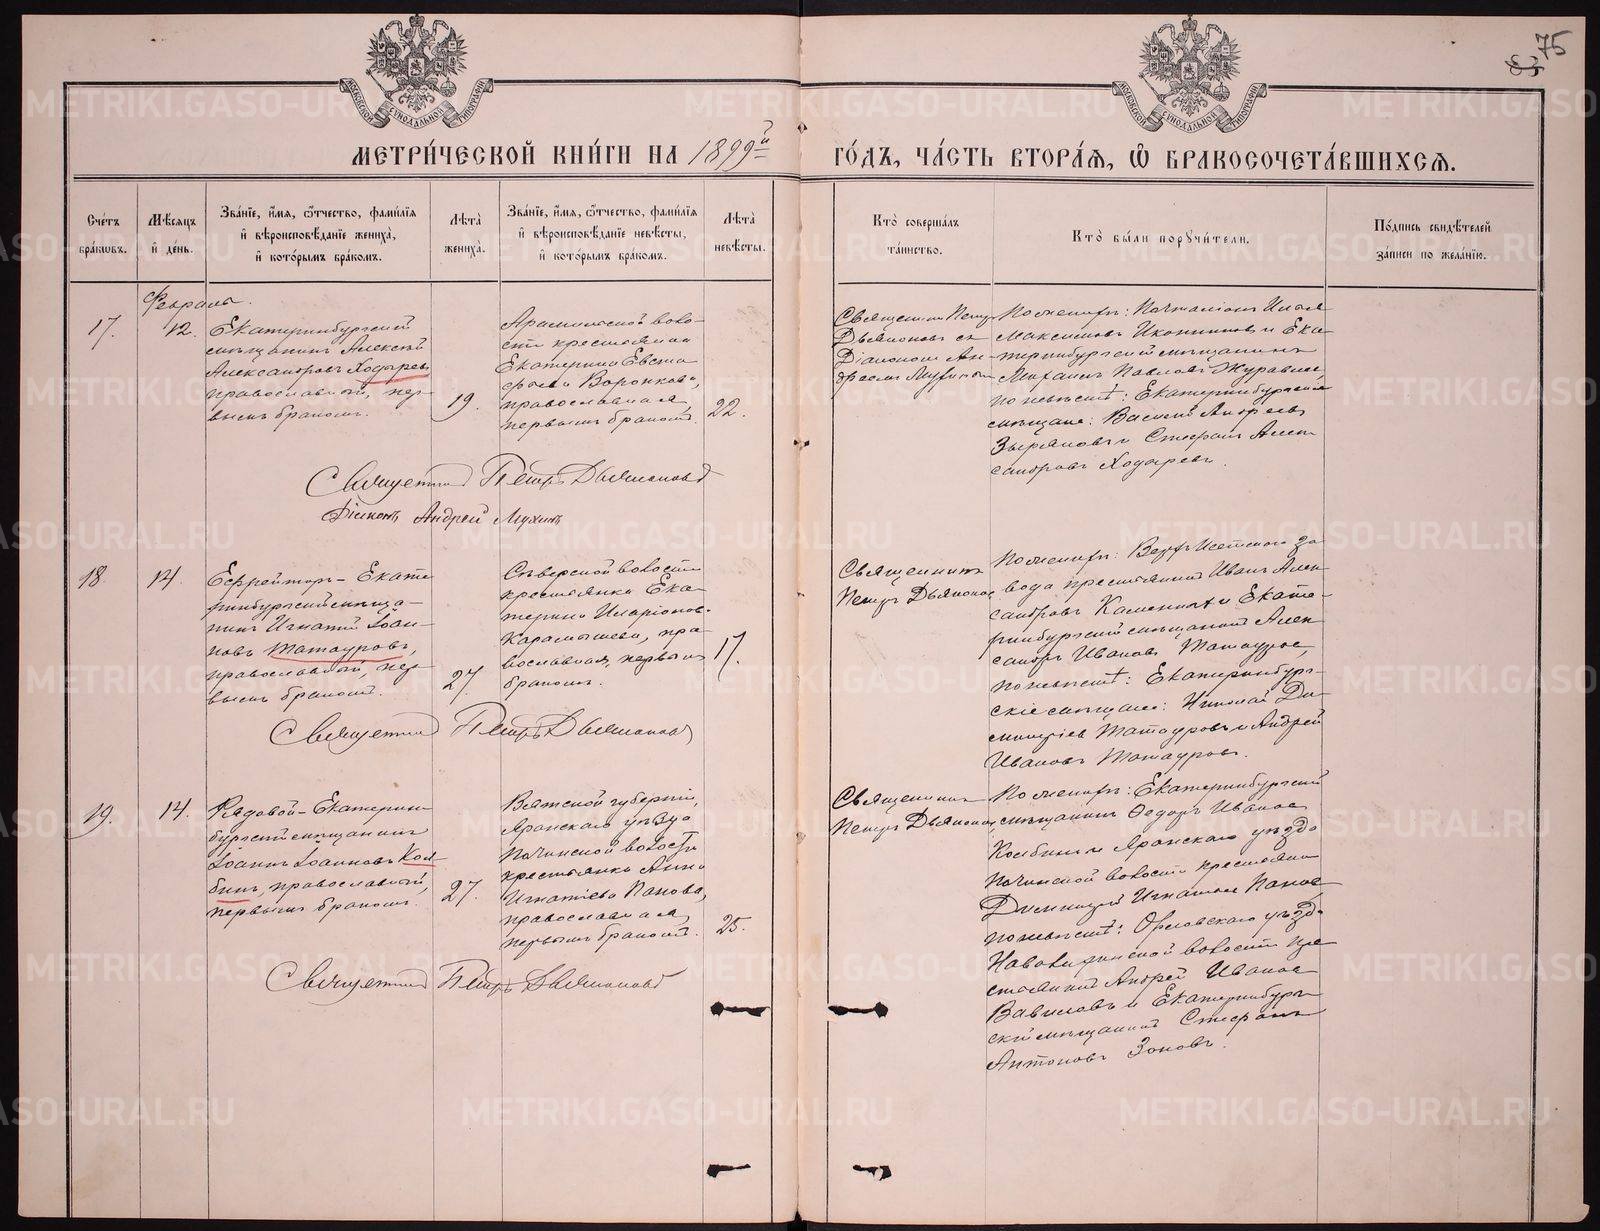 75
МОСКОВСКОЙ СУНОДАЛЬНОЙ ТИПОГРАФИИ
МОСКОВСКОЙ СУНОДАЛЬНОЙ ТИПОГРАФИИ
МЕТРИ́ЧЕСКОЙ КНИ́ГИ НА 1899й ГО́ДЪ, ЧА́СТЬ ВТОРА́Я, Ѡ҆ БРАКОСОЧЕТА́ВШИХСЯ.
Сче́тъ бра́кѡвъ.
Мѣ́сяцъ и҆ де́нь.
Зва́нїе, и҆́мя, ѻ҆́тчество, фами́лїя и҆ вѣроисповѣ́данїе жениха̀, и҆ кото́рымъ бра́комъ.
Лѣта̀ жениха̀.
Зва́нїе, и҆́мя, ѻ҆́тчество, фами́лїя и҆ вѣроисповѣ́данїе невѣ́сты, и҆ кото́рымъ бра́комъ.
Лѣта̀ невѣ́сты.
Кто̀ соверша́лъ та́инство.
Кто̀ бы́ли порꙋчи́тели.
По́дпись свидѣ́телей за́писи по жела́нїю.
Февраль.
17.
12.
Екатеринбургскій
мѣщанинъ Алексѣй
Александровъ Ходыревъ
православный, пер-
вымъ бракомъ.
19.
Арамильской воло-
сти крестьянка
Екатерина Евста
фьева Воронкова,
православная,
первымъ бракомъ.
22.
Священникъ Петръ
Дьяконовъ съ
Діакономъ Ан-
дреемъ Мухинымъ
По женихѣ: Почталіонъ Илья
Максимовъ Иконниковъ и Ека-
теринбургскій мѣщанинъ
Михаилъ Павловъ Журавлевъ
по невѣстѣ: Екатеринбургскіе
мѣщане: Василій Андреевъ
Зыряновъ и Стефанъ Алек
сандровъ Ходыревъ.
Священникъ Петръ Дьяконовъ
Діаконъ Андрей Мухинъ
18.
14.
Ефрейторъ - Екате
ринбургскій мѣща-
нинъ Игнатій Іоан-
новъ Татауровъ,
православный, пер-
вымъ бракомъ.
27.
Сѣверской волости
крестьянка Ека-
терина Иларіонов.
Карамышева, пра-
вославная, первымъ
бракомъ.
17.
Священникъ
Петръ Дьяконовъ
По женихѣ: Верхъ Исетскаго за
вода крестьянинъ Иванъ Алек-
сандровъ и Екате-
ринбургскій мѣщанинъ Алек
сандръ Ивановъ Татауровъ,
по невѣстѣ: Екатеринбург-
скіе мѣщане: Николай Ди-
митріевъ Татауровъ и Андрей
Ивановъ Татауровъ.
Священникъ Петръ Дьяконовъ
19.
14.
Рядовой - Екатерин
бургскій мѣщанинъ
Іоаннъ Іоанновъ Кол-
бинъ, православный,
первымъ бракомъ.
27.
Вятской губерніи,
Яранскаго уѣзда
Починской волости
крестьянка Анна
Игнатіева Панова,
православная,
первымъ бракомъ.
25.
Священникъ
Петръ Дьяконовъ
По женихѣ: Екатеринбургскій
мѣщанинъ Ѳедоръ Ивановъ
Колбинъ и Яранскаго уѣзда
Починской волости крестьянинъ
Димитрій Игнатьевъ Пановъ
по невѣстѣ: Орловскаго уѣзда
волости кре
стьянинъ Андрей Ивановъ
Вавиловъ и Екатеринбург
скій мѣщанинъ Стефанъ
Антоновъ Зоновъ.
Священникъ Петръ Дьяконовъ
METRIKI.GASO-URAL.RU